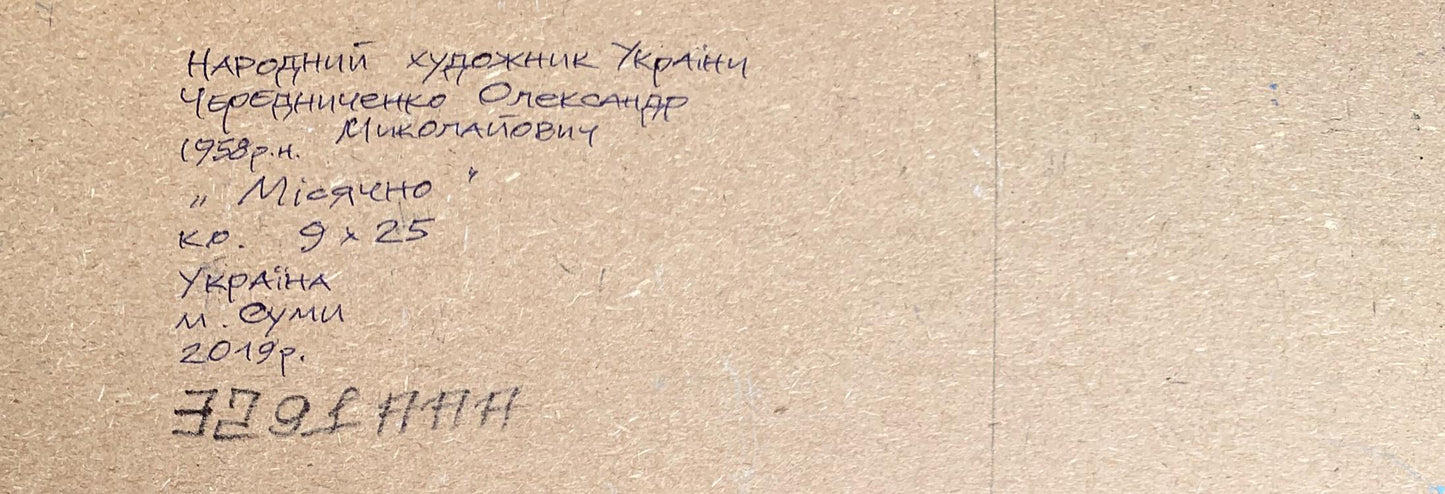 Народний художник України
Чередниченко Олександр
Миколайович
1958р.н.
„ Місячно "
кр. 9 x 25
Україна
м. Суми
2019р.